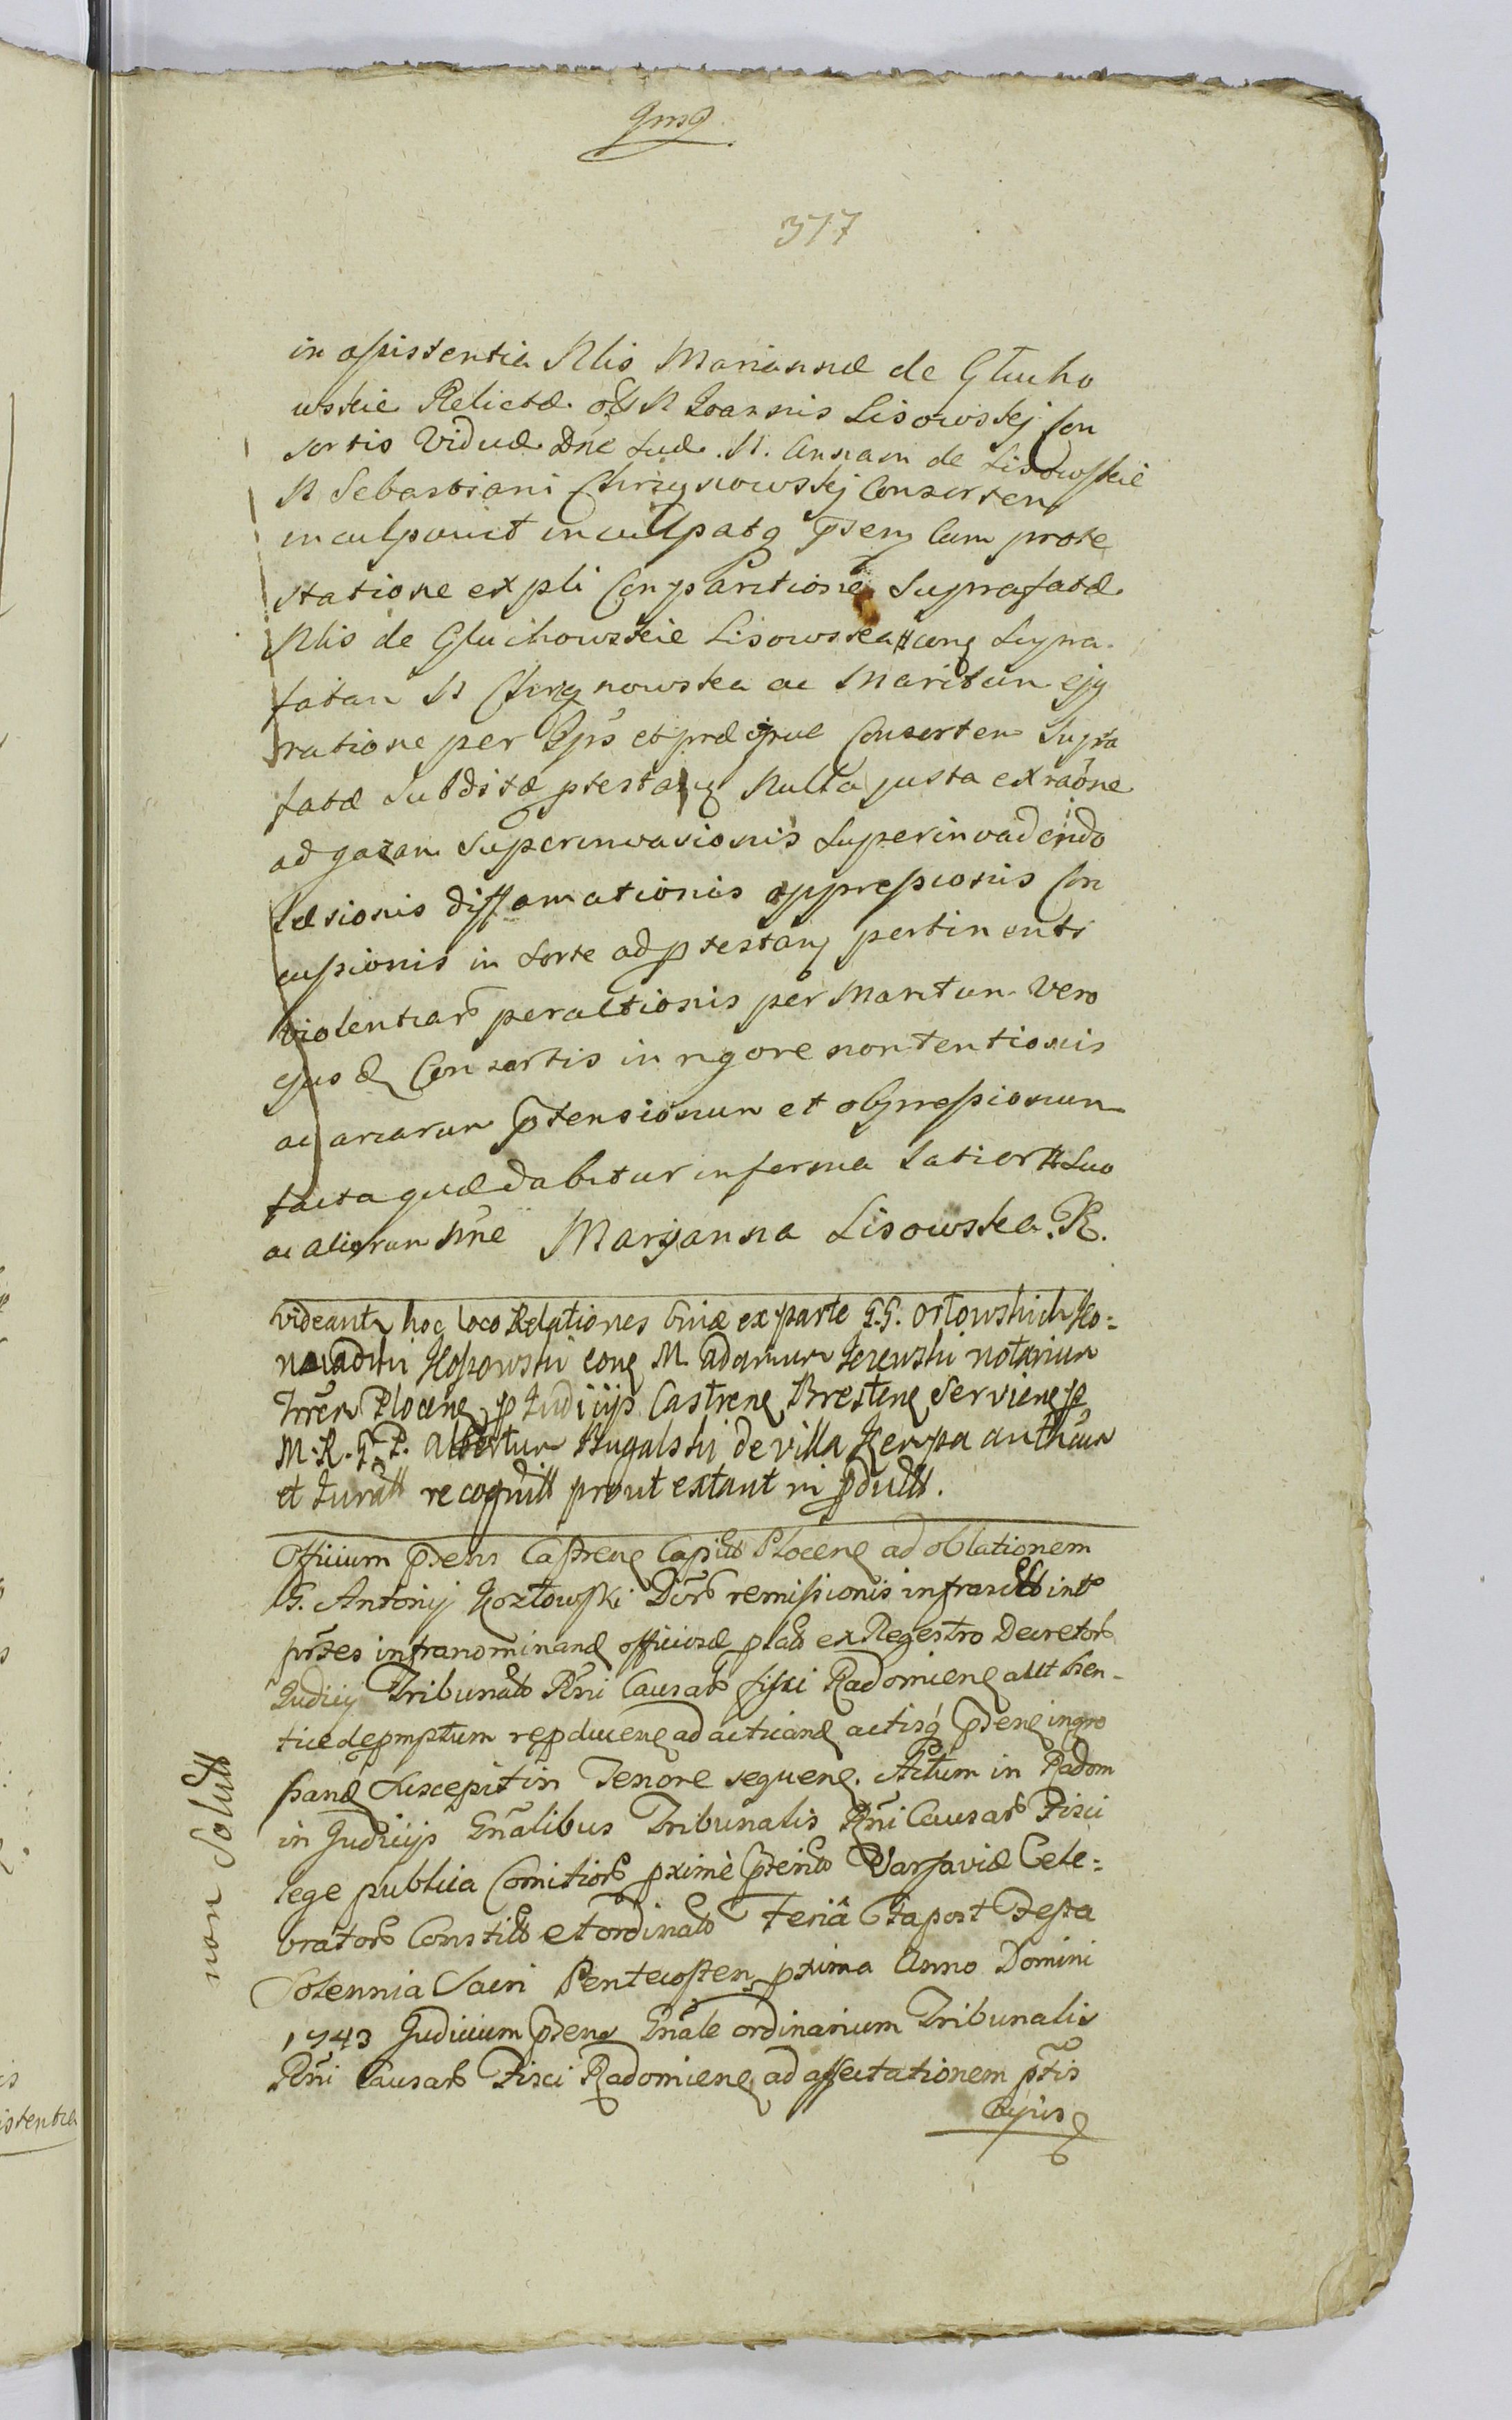 377
in assistentia Nlis Mariannæ de Głucho
wskie Relictæ olt N Joannis Lisowskij Con
sortis Viduæ Dnæ suæ. N. Annam de Lisowskie
N Sebastiani Chrzynowskij Consortem
inculpavit inculpatq pseng Cum prote
statione ex pli Comparitione Suprafatæ
Nlis de Gluchowskie Lisowska cong supra
fatam N Chrzynowska ac Maritum ejq
ratione per Ips et præcipue Consortem Supra
fatæ Subditæ ptestang Nulla justa ex raone
ad gazam Superinvasionis Superinvadendo
Læsionis diffamationis oppressionis Con
cussionis in sorte ad ptestang pertinenti
violentiar peractionis per Maritum Vero
ejusd Consortis in rigore non tentionis
ac aliarum ptensionum et oppressionum
facta quæ dabitur in forma Latiori Suo
ac aliorum nne Maryanna Lisowska R.
Videantr hoc loco Relationes binæ ex parte G.G. Orłowskich
Kossowski cong M. Adamum notarium
Trren Ploceng p Judicijs Castreng Bresteng
M.R.G.P. Albertum Bugalski de villa Kempa
et Juratt recognitt prout extant in pductt.
Officium psens Castreng Capitt Ploceng ad oblationem
G. Antonij Kozłowski Dcrt remissionis infrascitt int
prtes infranominand officiosæ ptatt ex Regestro Decretor
Judicij Tribunatt Rni Causar Fisci Radomieng authen-
tice depromptum repduceng ad acticand actisq pseng ingro
ssand Suscepit in Tenore sequeng. Actum in Radom
in Judicijs Gnalibus Tribunalis Rni Causar Fisci
lege publica Comitior pxime pterito Varsaviæ Cele-
brator Constitt et ordinatt Feriâ post Festa
Solennia Sacri Pentecosten pxima Anno Domini
1743 Judicium psens Gnale ordinarium Tribunalis
Rni Causar Fisci Radomieng ad affectationem ptis
Cujus
non Solutt